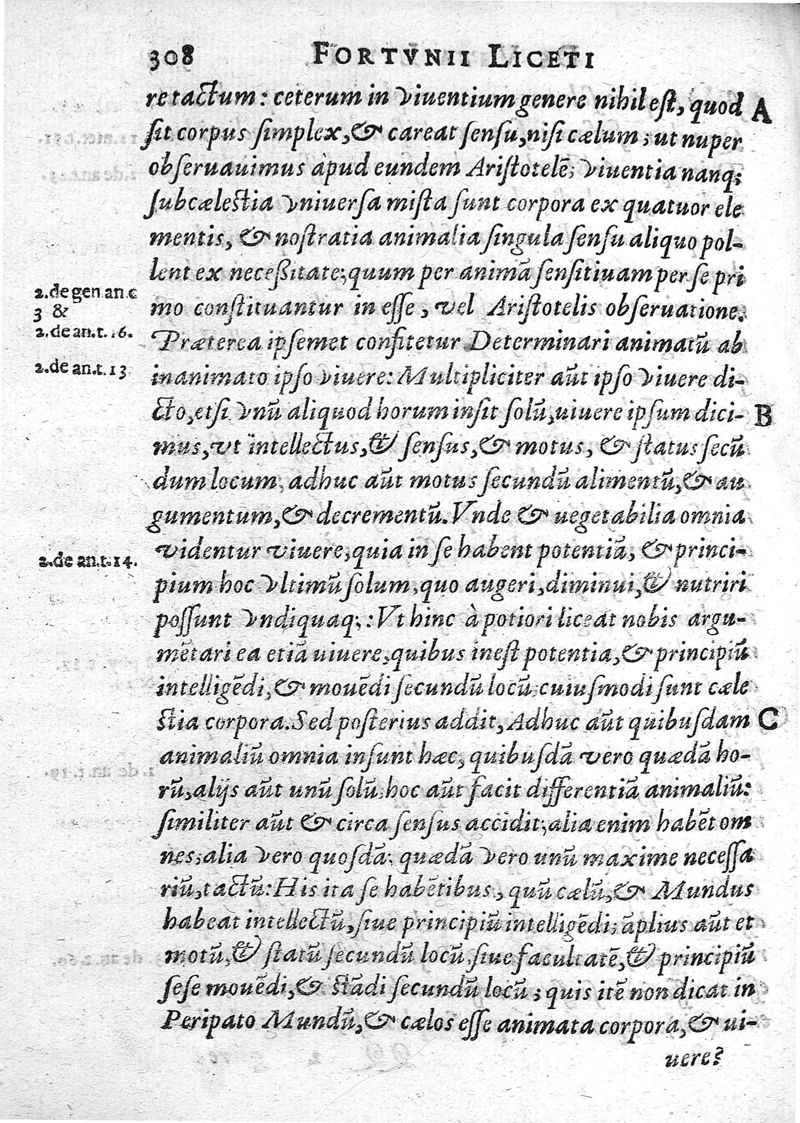 308 FORTVNII LICETI
re tactum: ceterum in viuentium genere nihil est, quod A
sit corpus simplex, & careat sensu, nisi cælum; ut nuper
obseruauimus apud eundem Aristotelē; viuentia nanq;
subcælestia vniuersa mista sunt corpora ex quatuor ele
mentis, & nostratia animalia singula sensu aliquo pol-
lent ex necessitate; quum per animā sensitiuam per se pri
2.de gen an.c
3 &
mo constituantur in esse, vel Aristotelis obseruatione.
2.de an.t.16.
Præterea ipsemet confitetur Determinari animatū ab
2.de an.t.13
inanimato ipso viuere: Multipliciter aūt ipso viuere di-
cto, etsi vnū aliquod horum insit solū, uiuere ipsum dici- B
mus, vt intellectus, & sensus, & motus, & status secū
dum locum, adhuc aūt motus secundū alimentū, & au
gumentum, & decrementū. Vnde & uegetabilia omnia
videntur viuere, quia in se habent potentiā, & princi-
2.de an.t.14.
pium hoc vltimū solum, quo augeri, diminui, & nutriri
possunt vndiquaq;: Vt hinc à potiori liceat nobis argu-
mētari ea etiā uiuere, quibus inest potentia, & principiū
intelligēdi, & mouēdi secundū locū; cuiusmodi sunt cæle
stia corpora. Sed posterius addit, Adhuc aūt quibusdam C
animaliū omnia insunt hæc, quibusdā vero quædā ho-
rū, alijs aūt unū solū; hoc aūt facit differentiā animaliū:
similiter aūt & circa sensus accidit; alia enim habēt om
nes; alia vero quosdā; quædā vero unū maxime necessa
riū, tactū: His ita se habētibus, quū cælū, & Mundus
habeat intellectū, siue principiū intelligēdi; āplius aūt et
motū, & statū secundū locū, siue facultatē, & principiū
sese mouēdi, & stādi secundū locū; quis itē non dicat in
Peripato Mundū, & cælos esse animata corpora, & ui-
uere?